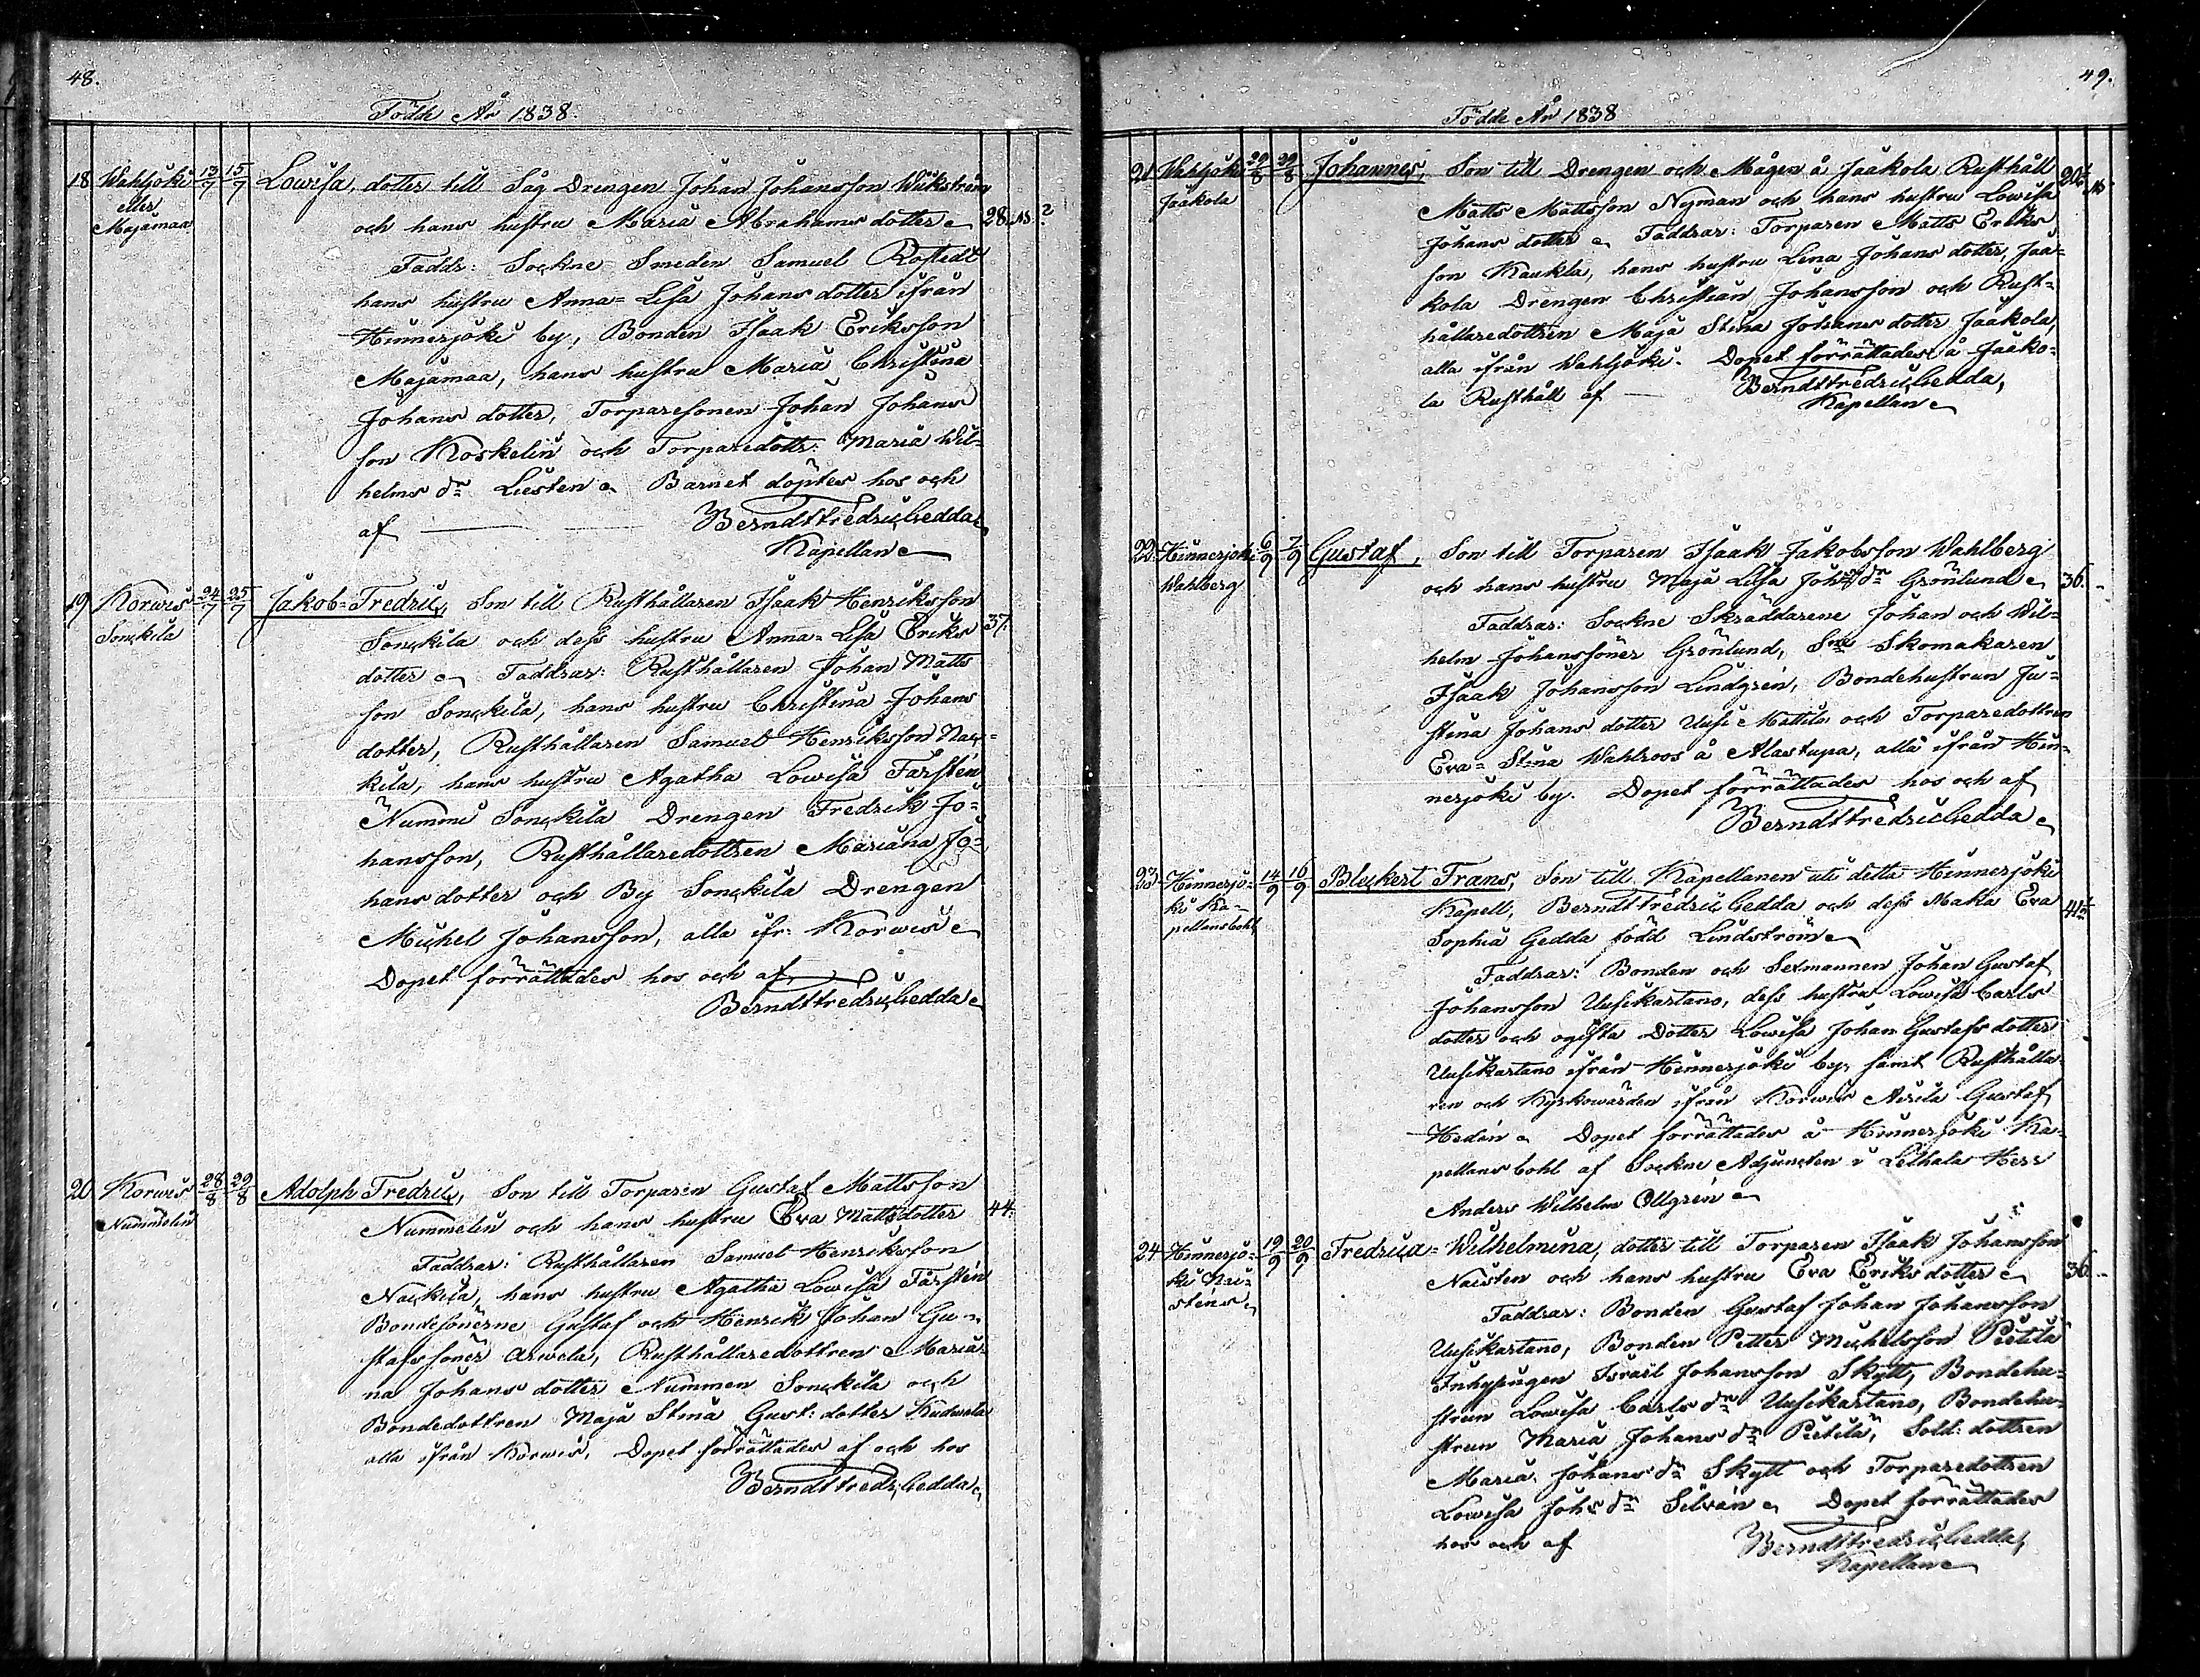 48.
Födde År 1838.
18 Wahljoki 13/7 15/7 Lowisa, dotter till Såg Drengen Johan Johansson Wiikström
eller
Majamaa och hans hustru Maria Abrahams dotter 28.
Faddr: Sockne Smeden Samuel Rostedt
hans hustru Anna=Lisa Johans dotter ifrån
Hinnerjoki by, Bonden Isaak Eriksson
Majamaa, hans hustru Maria Christina
Johans dotter, Torparesonen Johan Johans
son Koskelin och Torparedottr: Maria Wil=
helms dr Liesten Barnet döptes hos och
af Berndt Fredric Gedda
Kapellan
19 Korwis 24/7 25/7 Jakob=Fredric, Son till Rusthållaren Isaak Henriksson
Sonckila Sonckila och dess hustru Anna=Lisa Eriks 37.
dotter Faddrar: Rusthållaren Johan Matts
son Sonckila, hans hustru Christina Johans
dotter, Rusthållaren Samuel Henriksson Nac=
kila, hans hustru Agatha Lowisa Farstén
Nummi Sonckila Drengen Fredrik Jo=
hansson, Rusthållaredottren Mariana Jo=
hans dotter och By Sonckila Drengen
Michel Johansson, alla ifr: Korwis
Dopet förrättades hos och af
Berndt Fredric Gedda
20 Korwis 28/8 29/8 Adolph Fredric, Son till Torparen Gustaf Mattsson
Nummelin Nummelin och hans hustru Eva Mattsdotter 44.
Faddrar: Rusthållaren Samuel Henriksson
Nackila, hans hustru Agatha Lowisa Farstén
Bondesönerne Gustaf och Henrik Johan Gu=
stafssöner Arwela, Rusthållaredottren Maria=
na Johans dotter Nummen Sonckila och
Bondedottren Maja Stina Gust: dotter Kiidwala
alla ifrån Korwis. Dopet förrättades af och hos
Berndt Fredr: Gedda
49.
Födde År 1838
21 Wahljoki 29/8 29/8 Johannes, Son till Drengen och Mågen å Jaakola Rusthåll 20
Jaakola Matts Mattsson Nyman och hans hustru Lowisa
Johans dotter Faddrar: Torparen Matts Eriks
son Kaukla, hans hustru Lena Johans dotter, Jaa=
kola Drengen Christian Johansson och Rust=
hållaredottren Maja Stina Johans dotter Jaakola,
alla ifrån Wahljoki. Dopet förrättades å Jaako=
la Rusthåll af Berndt Fredric Gedda,
Kapellan
22 Hinnerjoki 6/9 7/9 Gustaf, Son till Torparen Isaak Jakobsson Wahlberg
Wahlberg och hans hustru Maja Lisa Johns dr Grönlund 36.
Faddrar: Sockne Skräddarene Johan och Wil=
helm Johanssöner Grönlund, Sne Skomakaren
Isaak Johansson Lindgrén, Bondehustrun Ju=
stina Johans dotter Uusi Mattila och Torparedottren
Eva=Stina Wahlroos å Alastupa, alla ifrån Hin=
nerjoki by. Dopet förrättades hos och af
Berndt Fredric Gedda
23 Hinnerjo= 14/9 16/9 Bleckert Frans, Son till Kapellanen uti detta Hinnerjoki
ki Ka= Kapell, Berndt Fredric Gedda och dess Maka Eva 41
pellansbohl Sophia Gedda född Lindström
Faddrar: Bonden och Sexmannen Johan Gustaf
Johansson Uusikartano, dess hustru Lowisa Carls
dotter och ogifta Dotter Lowisa Johan Gustafs dotter
Uusikartano ifrån Hinnerjoki by, samt Rusthålla=
ren och Kyrkowärden ifrån Korwis Anila Gustaf
Hedén Dopet förrättades å Hinnerjoki Ka=
pellans bohl af Sockne Adjuncten i Letthala Herr
Anders Wilhelm Ollgrén
24 Hinnerjo= 19/9 20/9 Fredrica=Wilhelmina, dotter till Torparen Isaak Johansson
ki Nai= Naisten och hans hustru Eva Eriks dotter 36.
sténs Faddrar: Bonden Gustaf Johan Johansson
Uusikartano, Bonden Petter Michelsson Pietilä
Inhysingen Israel Johansson Skytt, Bondehu=
strun Lowisa Carls dr Uusikartano, Bondehu=
strun Maria Johans dr Pietilä, Sold: dottren
Maria Johans dr Skytt och Torparedottren
Lowisa Johs dr Silván Dopet förrättades
hos och af Berndt Fredric Gedda,
Kapellan